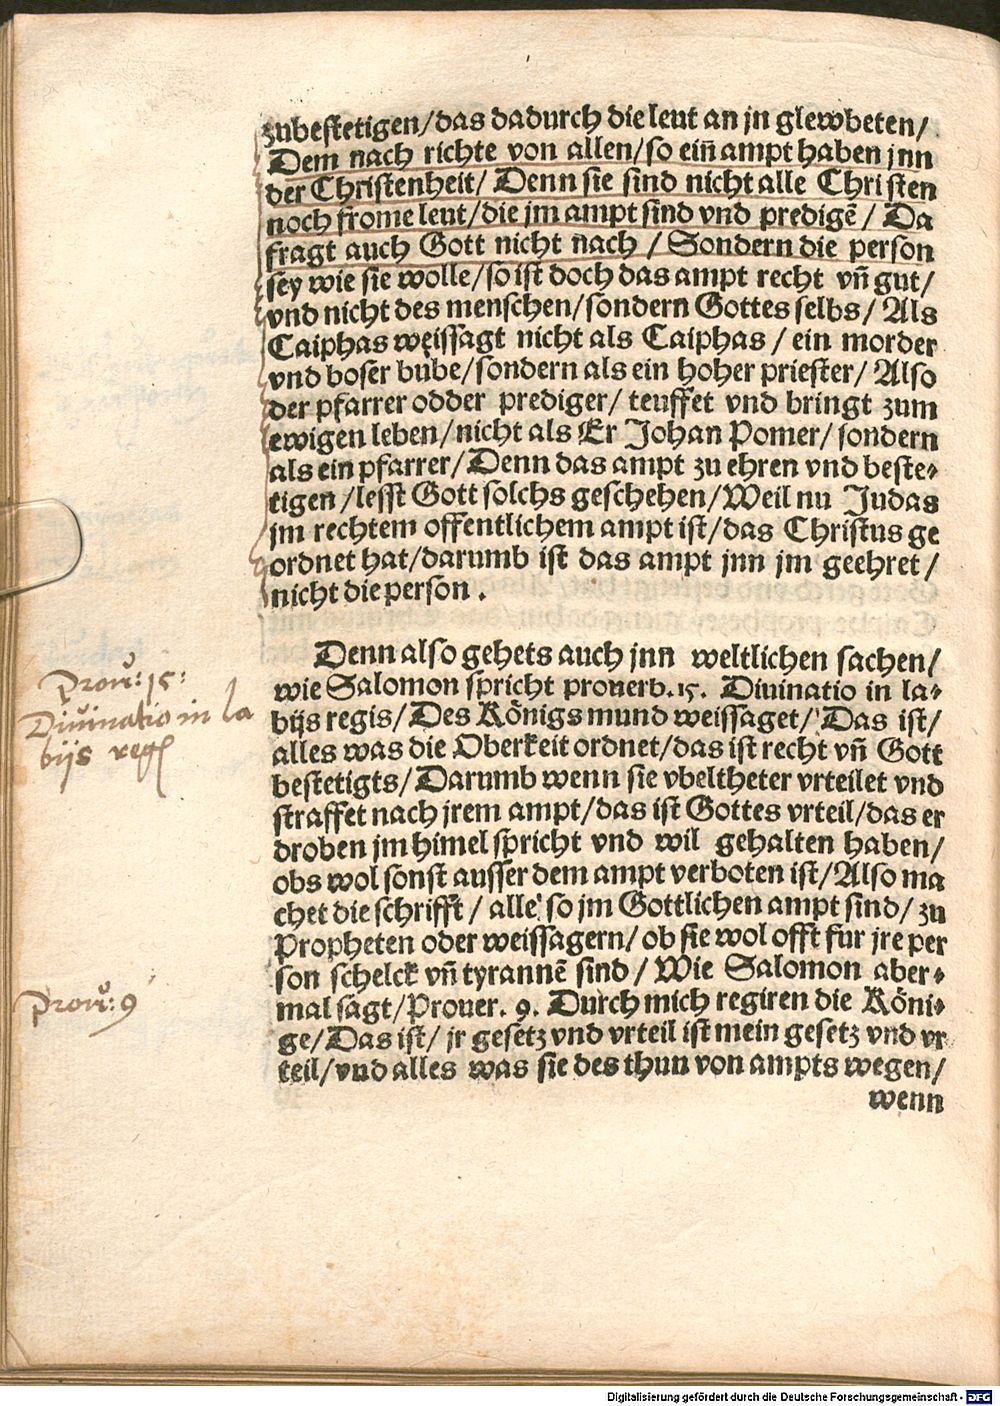 zubestetigen/das dadurch die leut an jn glewbeten/
Dem nach richte von allen/so ein̄ ampt haben jnn
der Christenheit/ Denn sie sind nicht alle Christen
noch frome leut/die jm ampt sind vnd predigē/ Da
fragt auch Gott nicht nach / Sondern die person
sey wie sie wolle/so ist doch das ampt recht vn̄ gut/
vnd nicht des menschen/sondern Gottes selbs/ Als
Caiphas weissagt nicht als Caiphas / ein morder
vnd boser bube/sondern als ein hoher priester/ Also
der pfarrer odder prediger/ teuffet vnd bringt zum
ewigen leben/nicht als Er Johan Pomer/ sondern
als ein pfarrer/ Denn das ampt zu ehren vnd beste-
tigen /lesst Gott solchs geschehen/ Weil nu Judas
jm rechtem offentlichem ampt ist/das Christus ge
ordnet hat/darumb ist das ampt jnn jm geehret/
nicht die person .
Denn also gehets auch jnn weltlichen sachen/
wie Salomon spricht prouerb.15. Diuinatio in la-
bijs regis/ Des Königs mund weissaget/ Das ist/
alles was die Oberkeit ordnet/das ist recht vn̄ Gott
bestetigts/ Darumb wenn sie vbeltheter vrteilet vnd
straffet nach jrem ampt/das ist Gottes vrteil/das er
droben jm himel spricht vnd wil gehalten haben/
obs wol sonst ausser dem ampt verboten ist/ Also ma
chet die schrifft / alle so jm Gottlichen ampt sind/ zu
Propheten oder weissagern/ ob sie wol offt fur jre per
son schelck vn̄ tyrannē sind / Wie Salomon aber-
mal sagt/ Prouer. 9. Durch mich regiren die Köni-
ge/ Das ist/ jr gesetz vnd vrteil ist mein gesetz vnd vr
teil/vnd alles was sie des thun von ampts wegen/
wenn
Prou: 15:
Diuinatio in la
bijs reg
Prou: 9
Digitalisierung gefördert durch die Deutsche Forschungsgemeinschaft - DFG